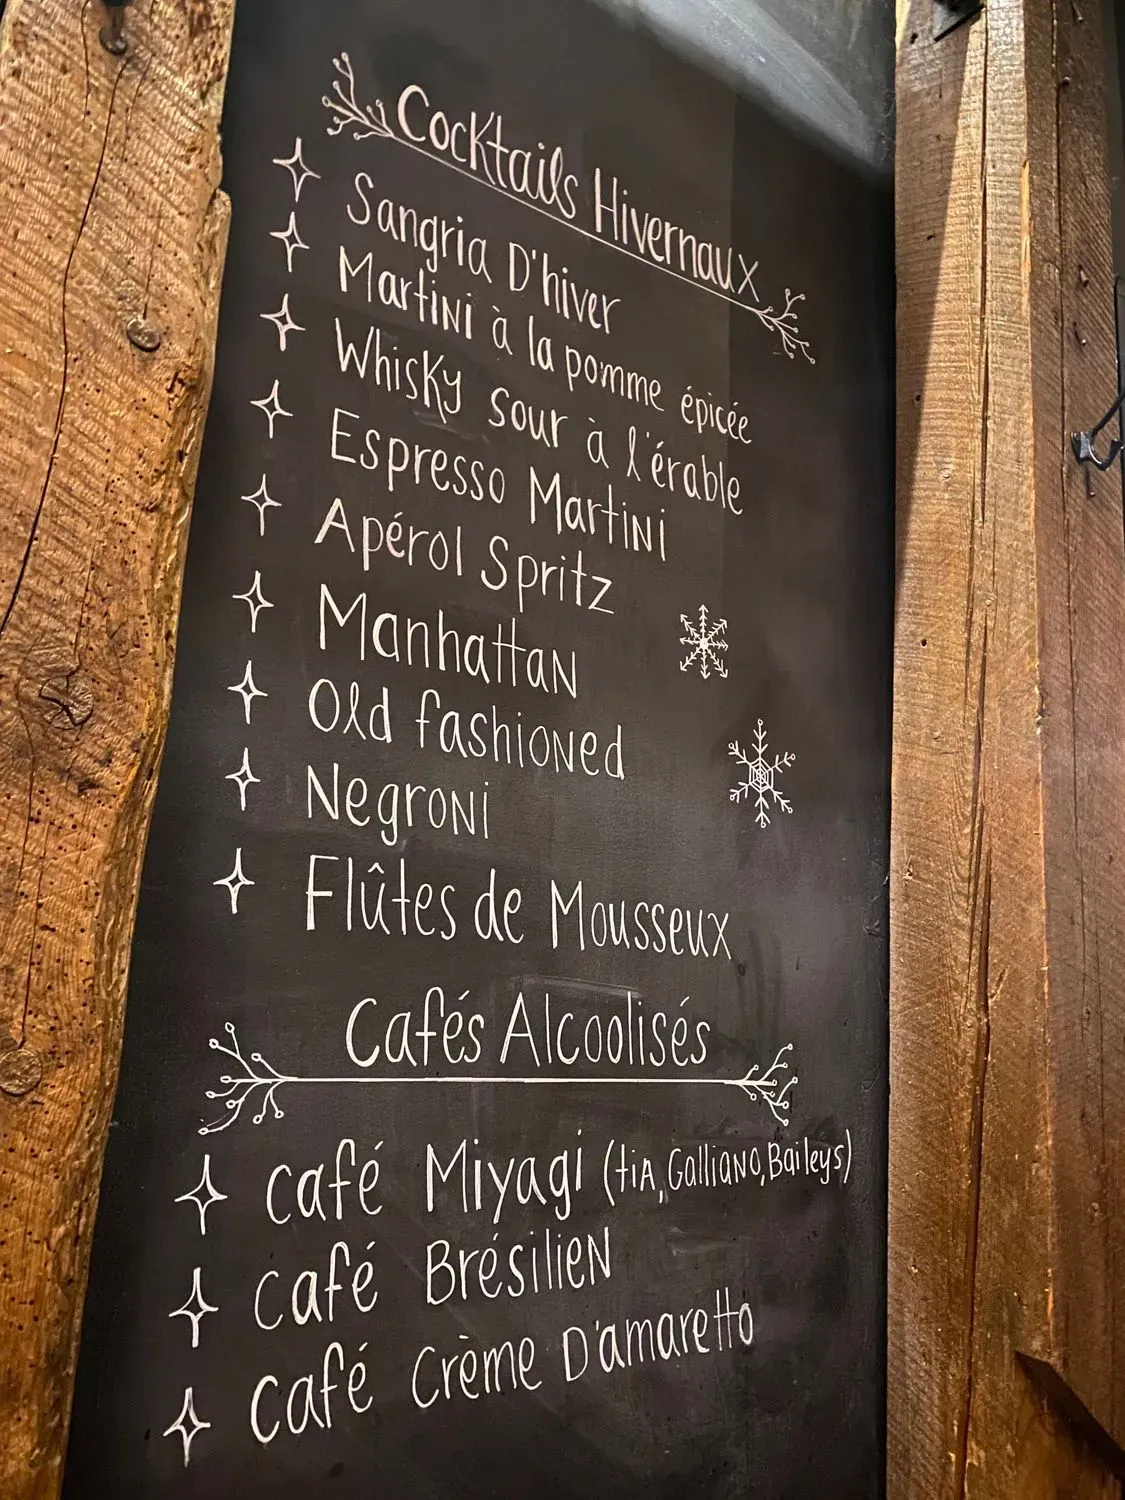 Cocktails Hivernaux
Sangria D'hiver
Martini à la pomme épicée
Whisky sour à l'érable
Espresso Martini
Apérol Spritz
Manhattan
Old fashioned
Negroni
Flûtes de Mousseux
Cafés Alcoolisés
café Miyagi (tiA, Galliano, Baileys)
café Brésilien
café Crème D'amaretto